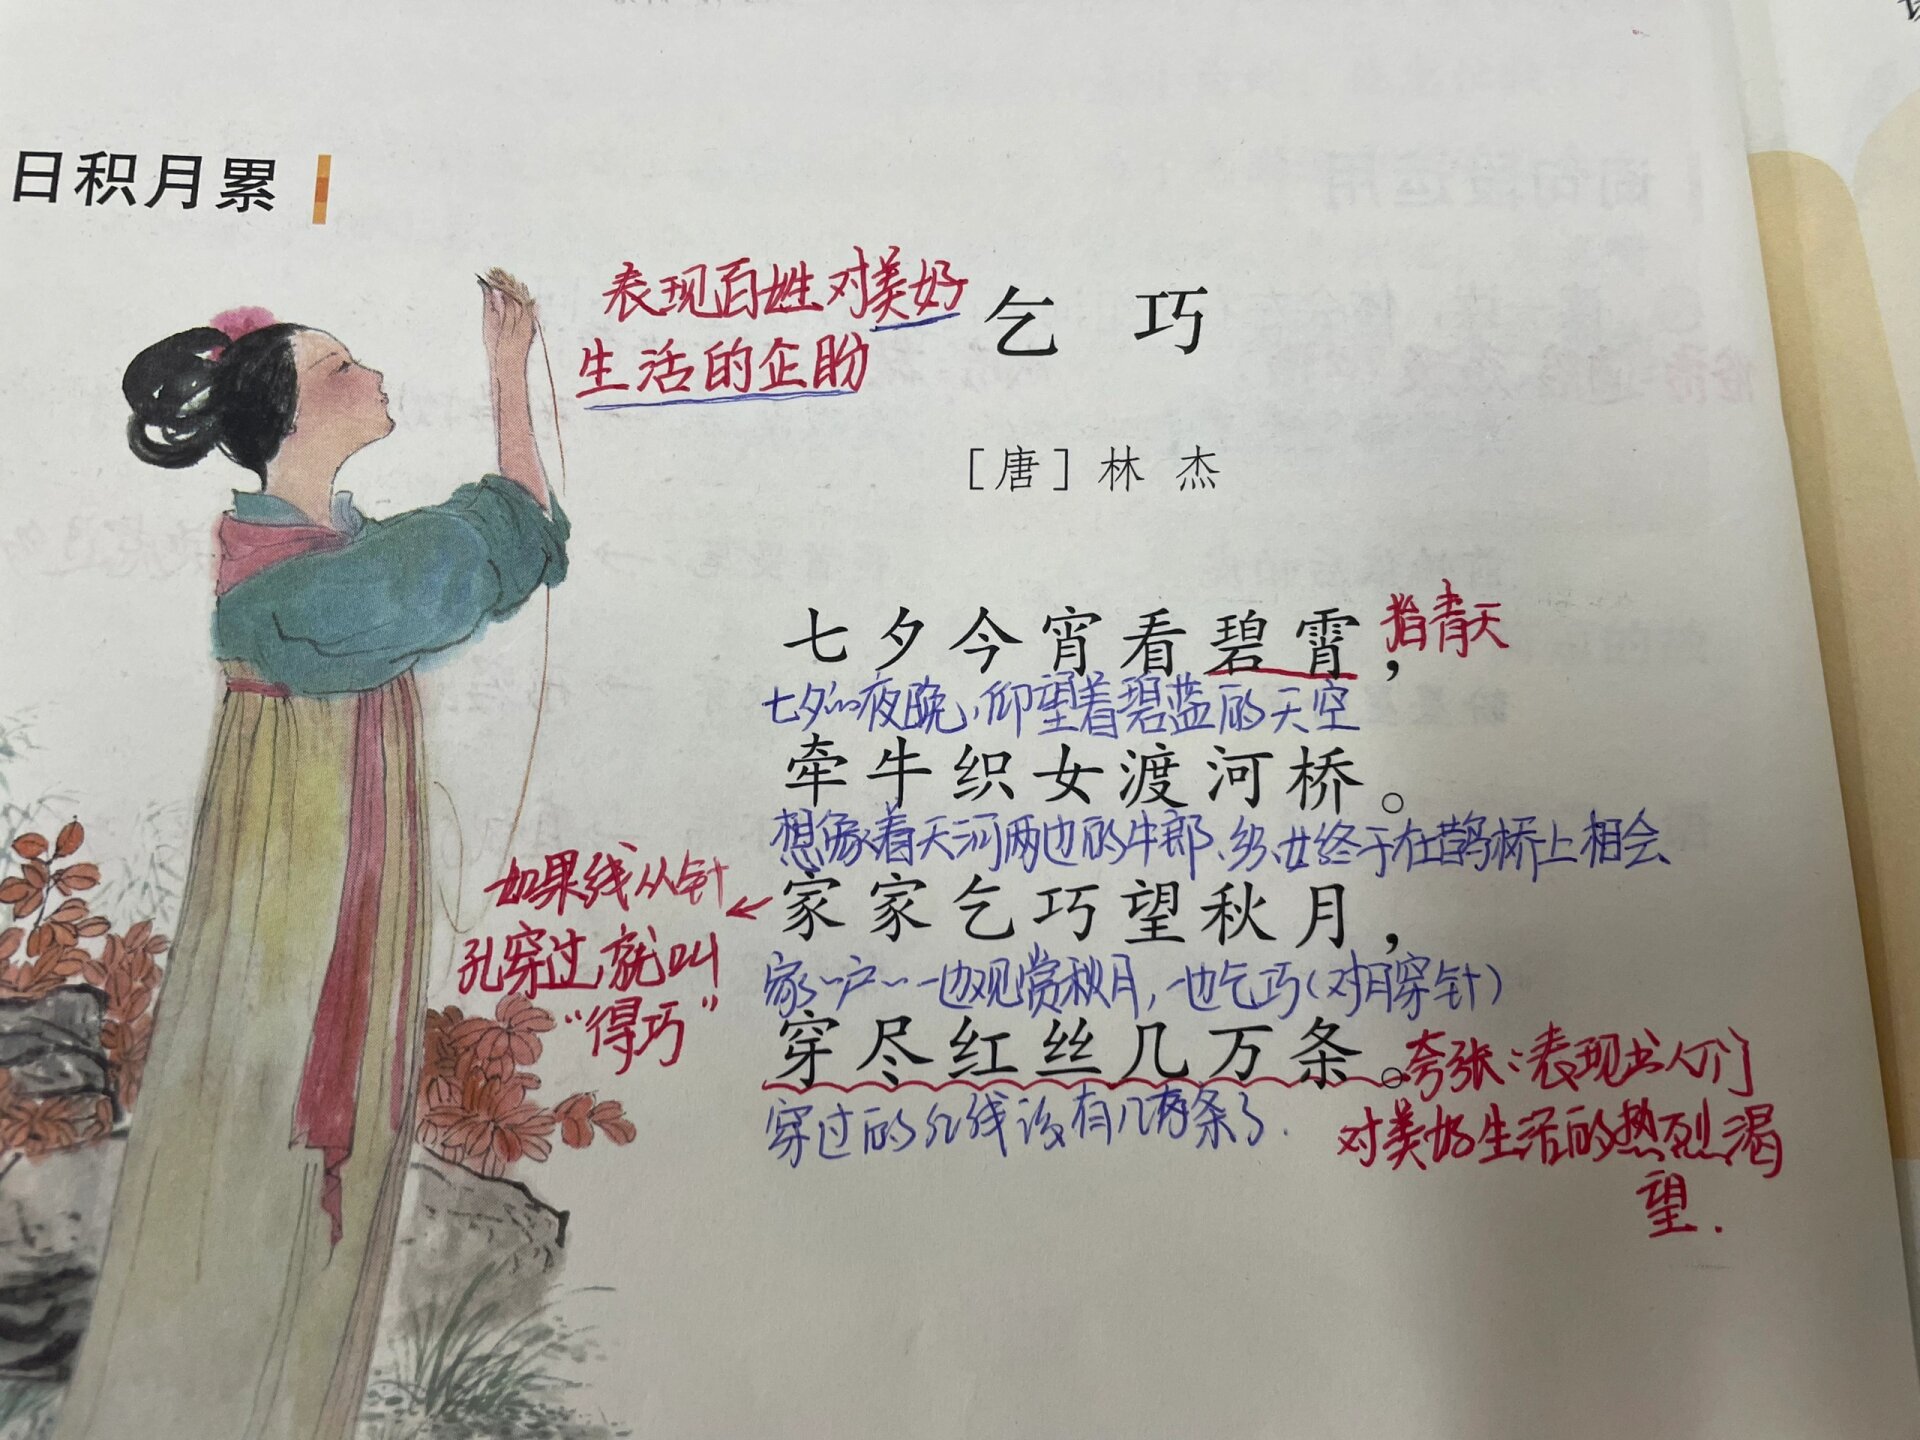 日积月累
表现百姓对美好
生活的企盼
乞巧
[唐]林杰
七夕今宵看碧霄，
指青天
七夕的夜晚，仰望着碧蓝的天空
牵牛织女渡河桥。
想象着天河两边的牛郎、织女终于在鹊桥上相会
家家乞巧望秋月，
如果线从针
孔穿过，就叫
“得巧”
家家户户一边观赏秋月，一边乞巧(对月穿针)
穿尽红丝几万条。
夸张：表现出人们
对美好生活的热烈渴
望.
穿过的红线该有几万条了.